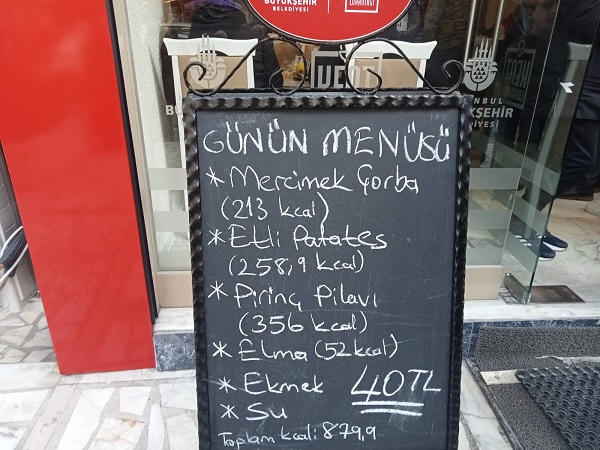 BÜYÜKŞEHİR
BELEDİYESİ
LOKANTASI
KENT
İSTANBUL
BÜYÜKŞEHİR
BELEDİYESİ
GÜNÜN MENÜSÜ
* Mercimek Çorba
(213 kcal)
* Etli Patates
(258,9 kcal)
* Pirinç Pilavı
(356 kcal)
* Elma (52kcal)
* Ekmek 40TL
* Su
Toplam kcal: 879,9